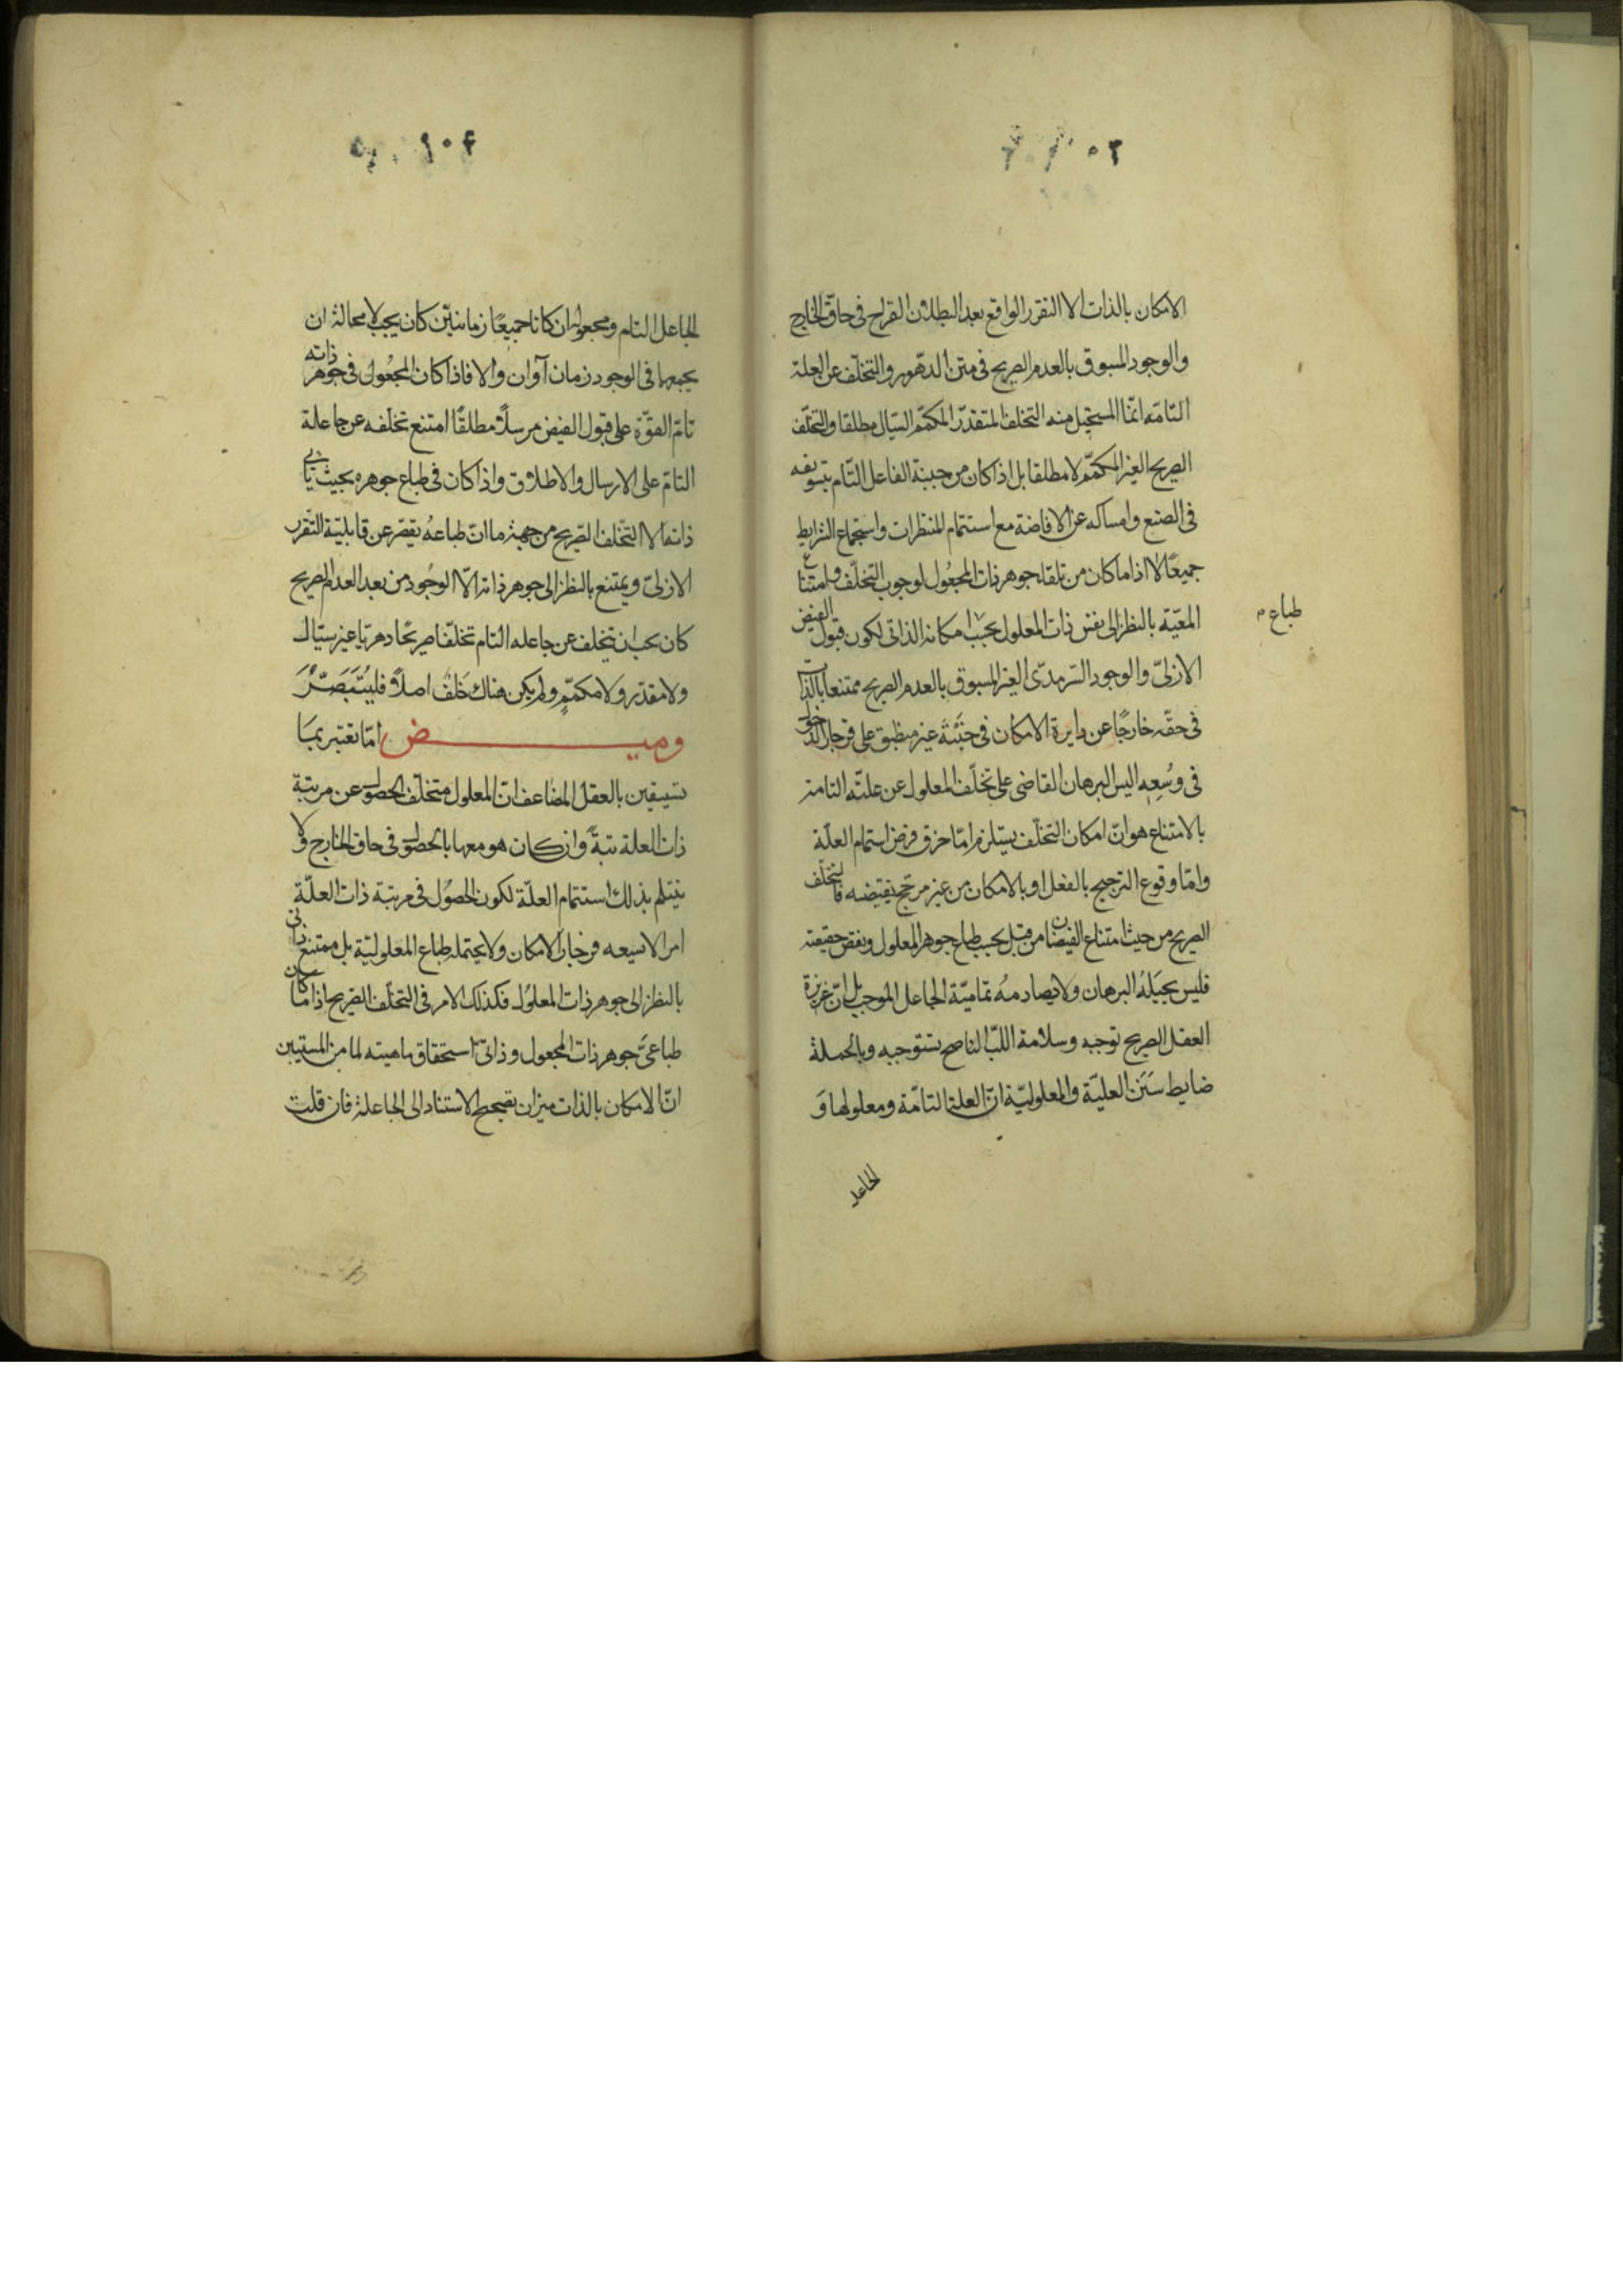 الامكان بالذات الا التقرر الواقع بعد البطلان القراح فى حاقّ الخارج
والوجود المسبوق بالعدم الصريح فى متن الدهر والتخلّف عن العلة
التامّه انّما المستحيل منه التخلف المتقدّر المكمّم السّيال مطلقا والتخلّف
الصريح الغير المكمّم لا مطلقا بل اذا كان من جنبة الفاعل التّام بتسويفه
فى الصنع وامساكه عن الافاضة مع استتمام المنتظرات واستجماع الشرايط
جميعًا لا اذا ما كان من تلقاء جوهر ذات المجعُول لوجوب التخلّف وامتناع
المعيّة بالنظر الى نفس ذات المعلول بحسب امكانه الذاتى لكون قبول الفيض
طباع م
الازلىّ والوجود السّرمدّى الغير المسبوق بالعدم الصريح ممتنعا بالذات
فى حقّه خارجًا عن دايرة الامكان فى جنبته غير منطبق على فرجار الدخول
فى وُسْعِه اليس البرهان القاضى على تخلّف المعلول عن علتّه التامة
بالامتناع هو انّ امكان التخلّف يستلزم امّا خرق فرض استتمام العلّة
وامّا وقوع الترجيح بالفعل او بالامكان من غير مرجّح يقتضيه فالتخلّف
الصريح من حيث امتناع الفيضان من قبل بحسب طباع جوهر المعلول ونقص حقيقته
فليس يحيَلهُ البرهان ولا يصادمهُ تماميّة الجاعل الموجب بل انّ غريزة
العقل الصريح توجبه وسلامة اللّبّ الناصح تستوجبه وبالجملة
ضابط سَنَن العليّة والمعلوليّة انّ العلة التامّة ومعلولها وَ
الجاعل
الجاعل التام ومجعوله ان كانا جميعًا زمانيّين كان يجب لا محالة ان
يجمعهما فى الوجود زمان او آن والا فاذا كان المجعُول فى جوهر ذاته
تامّ القوّة على قبول الفيض مرسلًا مطلقًا امتنع تخلّفه عن جاعله
التامّ على الارسال والاطلاق واذا كان فى طباع جوهره بحيث يابى
ذاته الا التّخلف الصّريح من جهة ما انّ طباعهُ يقصر عن قابليّة التقرر
الازلىّ ويمتنع بالنظر الى جوهر ذاته الّا الوجُود من بعد العدم الصريح
كان يجب ان يتخلف عن جاعله التام تخلّفا صريحًا دهريّا غير سيّال
ولا مقدّر ولا مكمّم ولم يكن هناك خَلف اصلًا فليُتَبَصَّرْ
وميض امّا تعتبر بما
تستيقن بالعقل المضاعف انّ المعلول متخلّف الحصول عن مرتبة
ذات العلة بتةً وان كان هو معها بالحصول فى حاق الخارج ولا
ينثلم بذلك استتمام العلّة لكون الحصُول فى مرتبة ذات العلّة
امرا لا يسعه فرجار الامكان ولا يحتمله طباع المعلوليّة بل ممتنع ذاتى
بالنظر الى جوهر ذات المعلوُل فكذلك الامر فى التخلّف الصّريح اذا ما كان
طباعىّ جوهر ذات المجعول وذاتىّ استحقاق ماهيته لما من المستبين
انّ الامكان بالذات ميزان تصحيح الاستناد الى الجاعلة فان قلت